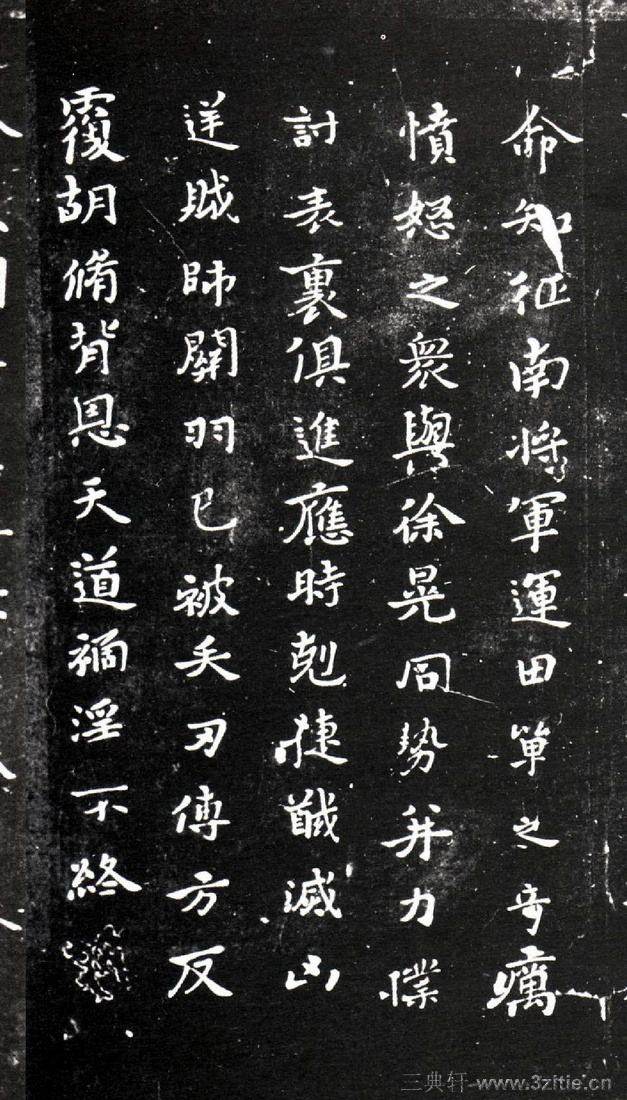 命知征南將軍運田單之奇厲
憤怒之衆與徐晃同勢并力撲
討表裏俱進應時剋捷馘滅凶
逆賊帥關羽已被矢刃傅方反
覆胡脩背恩天道禍淫不終
三典轩 www.3zitie.cn